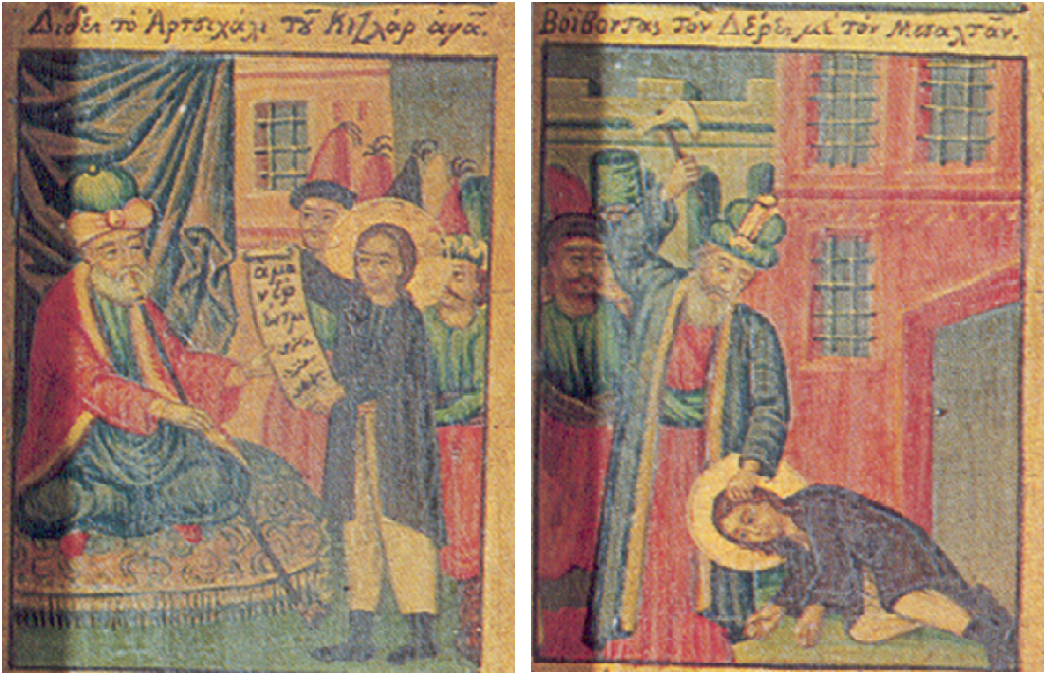 Δίδει τὸ Ἀρτσιχάλι τοῦ Κιζλὰρ ἀγᾶ.
αμα
Βόϊβοντας τὸν Δέρει, μὲ τὸν Μπαλτᾶν.